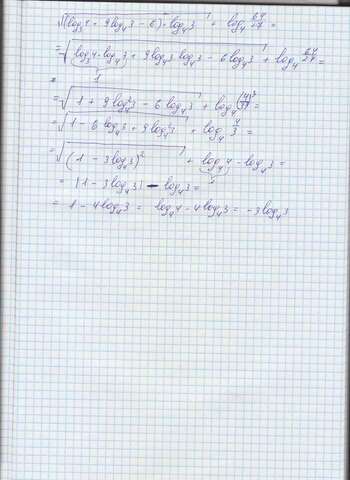 = √((log₃4 + 9log₄3 - 6) · log₄3) + log₄ 64/27 =
= √(log₃4 · log₄3 + 9log₄3 log₄3 - 6log₄3) + log₄ 64/27 =
1
= √(1 + 9log₄²3 - 6log₄3) + log₄(4/3)³ =
= √(1 - 6log₄3 + 9log₄²3) + log₄
= √((1 - 3log₄3)²) + log₄4 - log₄3 =
= |1 - 3log₄3| - log₄3 =
= 1 - 4log₄3 = log₄4 - 4log₄3 = -3log₄3